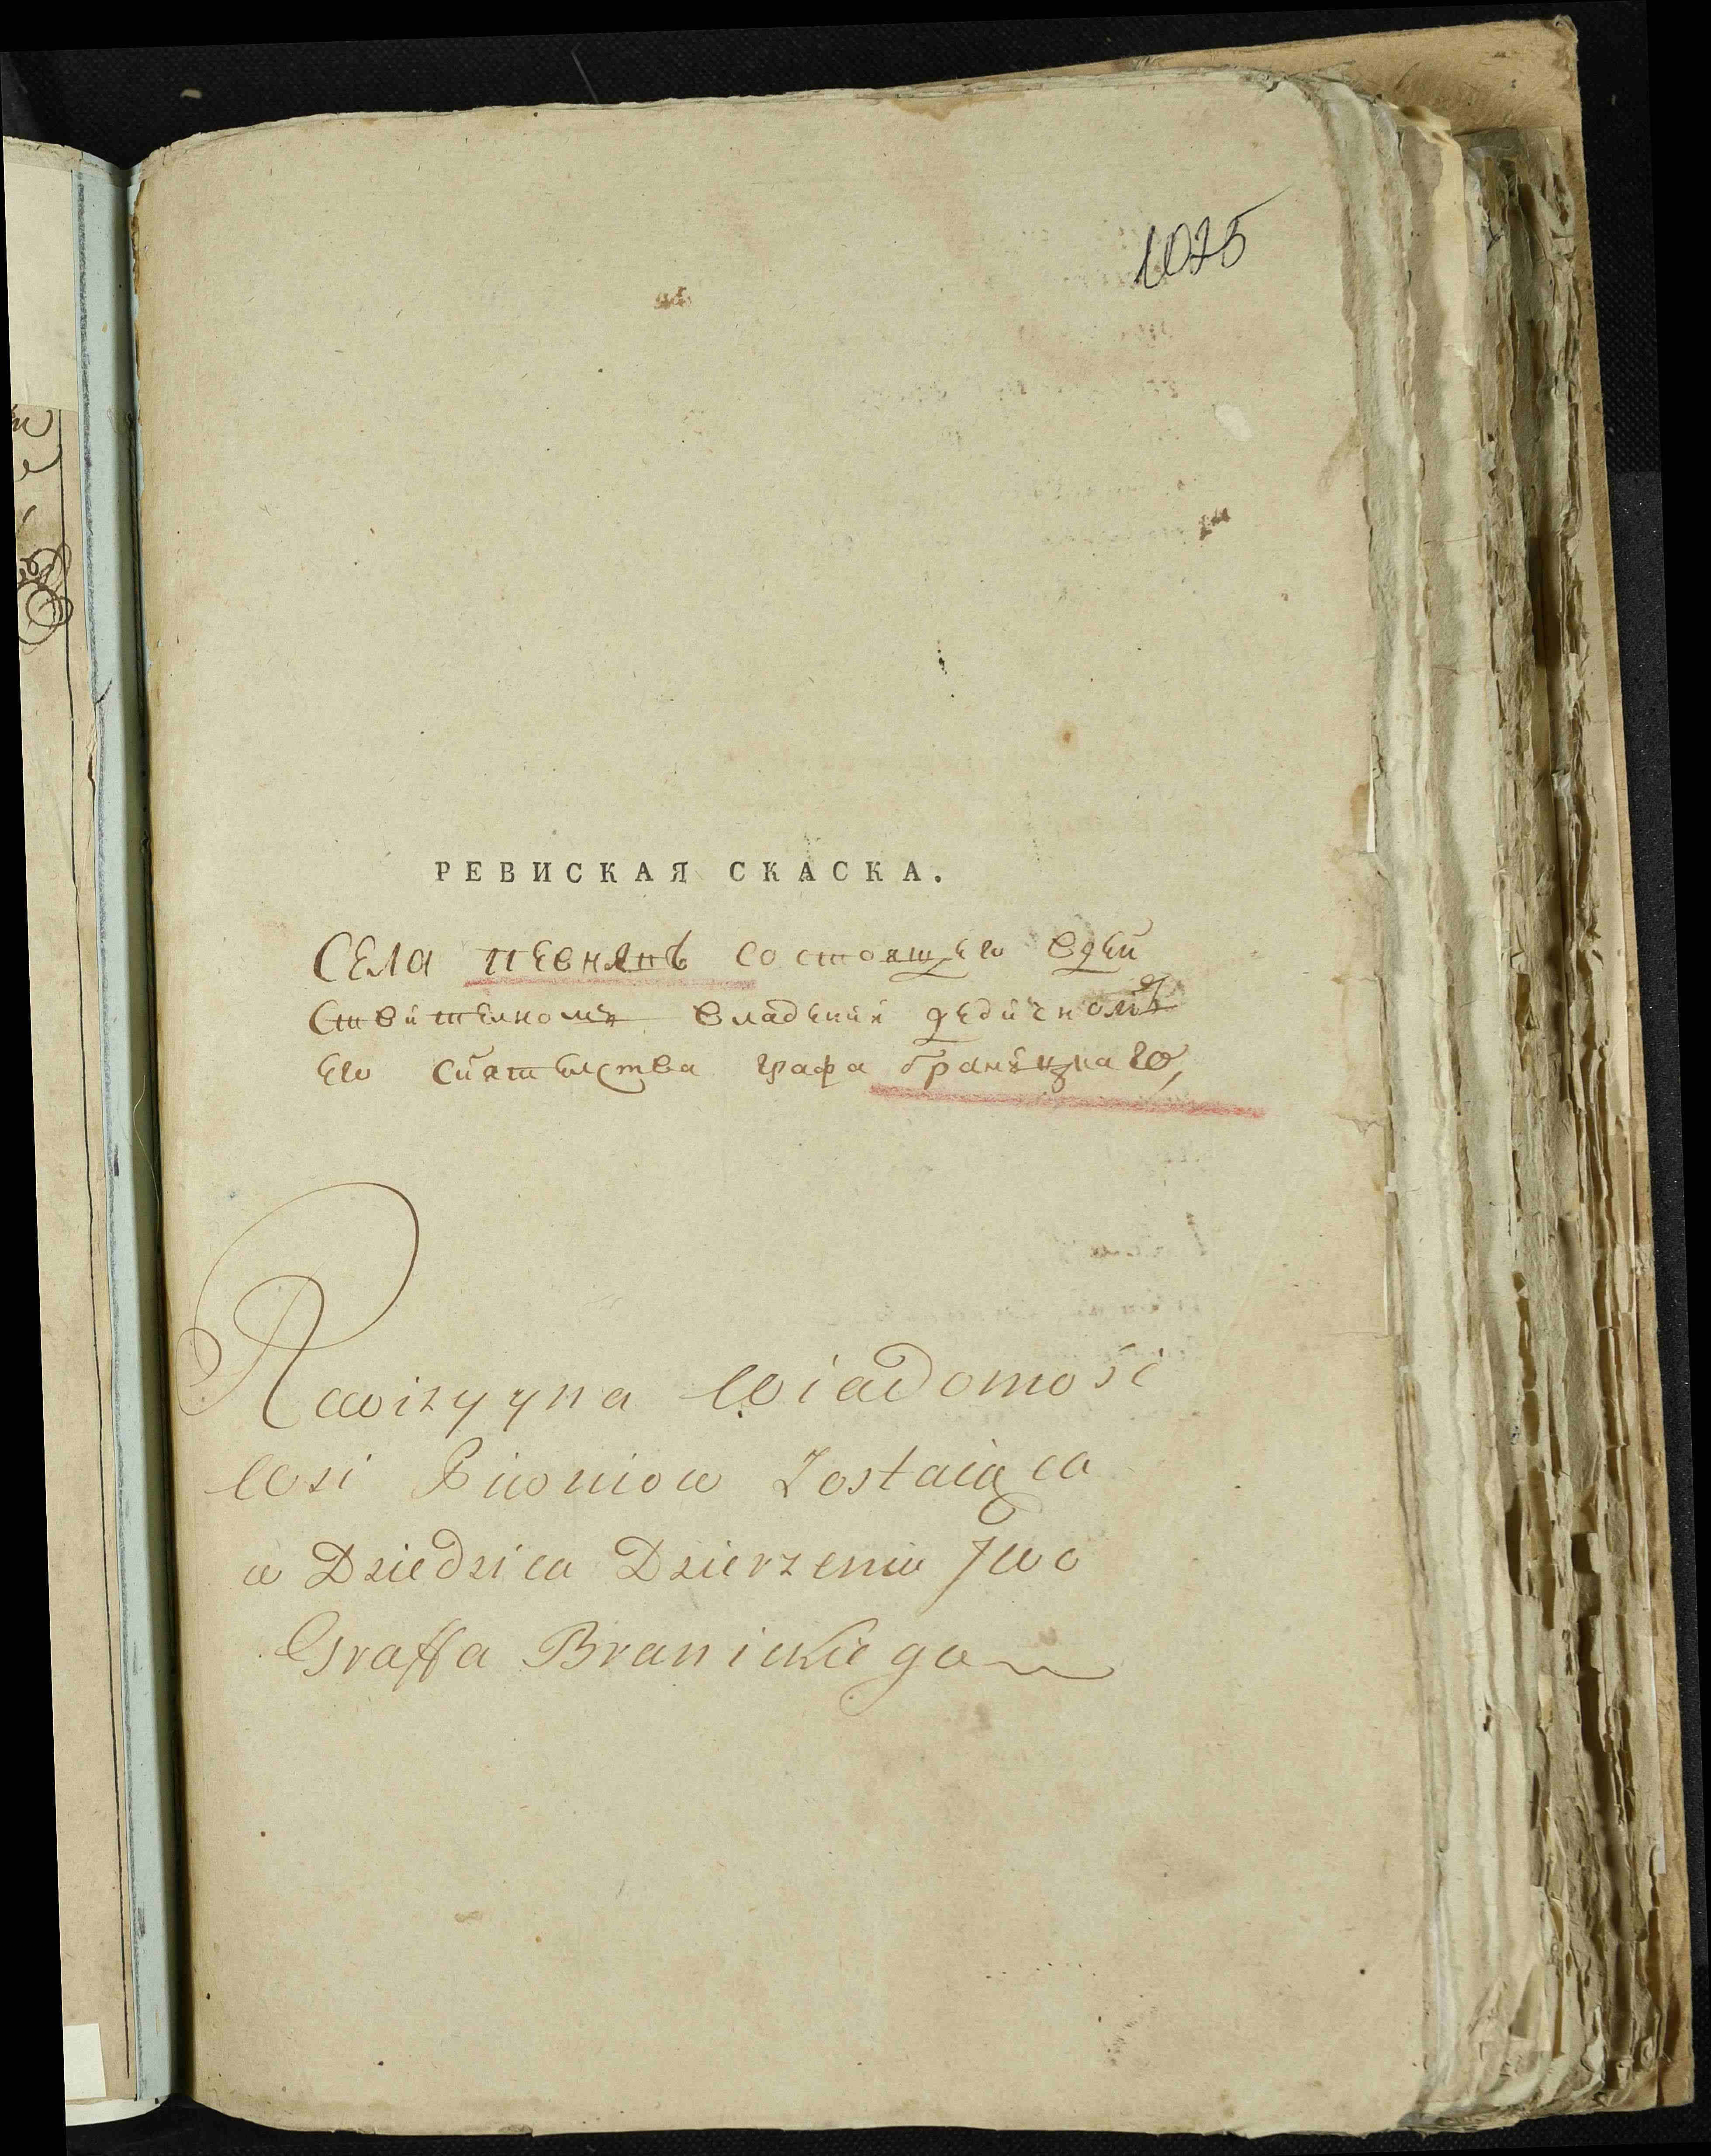 1025
РЕВИСКАЯ СКАСКА.
Села певнянъ состоящего вдей
Ствителномъ владении дедичномъ
его сиятелства графа браницкаго,
Rewizyyna Wiadomość
Wsi Piwniow Zostaiąca
w Dziedzica Dzierzeniu JWo
Graffa Branickiego